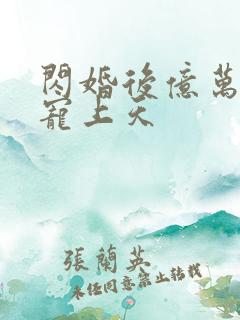 閃婚後億萬
寵上天
張蘭英
未經同意禁止轉載